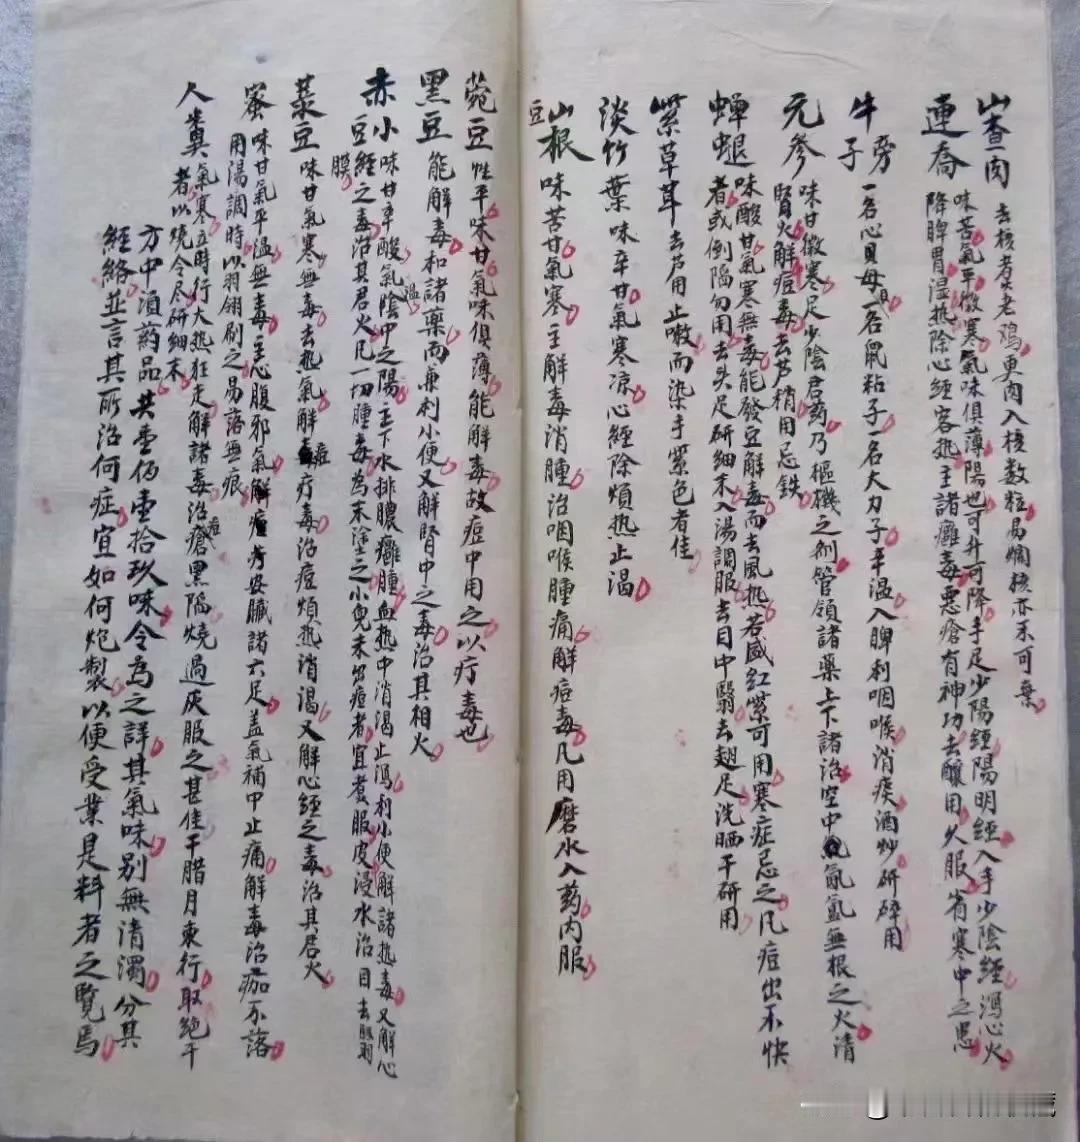 山查肉 去核煮老鸡更肉入核数粒易烂核亦不可棄
連喬 味苦氣平微寒氣味俱薄陽也可升可降手足少陽經陽明經入手少陰經瀉心火
降脾胃湿热除心經客热主諸癰毒悪瘡有神功去穰用久服有寒中之患
牛旁子 一名心貝母一名鼠粘子一名大力子辛温入脾利咽喉消痰酒炒研碎用
元參 味甘微寒足少陰君药乃樞機之剂管領諸藥上下諸治空中氤氲無根之火清
腎火解痘毒去芦梢用忌鉄
蟬蜕 味酸甘氣寒無毒能發豆解毒而去風热若盛红紫可用寒症忌之凡痘出不快
者或倒陷勿用去头足研細末入湯調服去目中翳去翅足洗晒干研用
紫草茸 去芦用止嗽而染手紫色者佳
淡竹葉 味辛甘氣寒凉心經除煩热止渴
山豆根 味苦甘氣寒主解毒消腫治咽喉腫痛解痘毒凡用磨水入药内服
菀豆 性平味甘氣味俱薄能解毒故痘中用之以疗毒也
黑豆 能解毒和諸藥而兼利小便又解腎中之毒治其相火
赤小豆 味甘辛酸氣温陰中之陽主下水排膿癰腫血热中消渴止瀉利小便解諸热毒又解心
經之毒治其君火凡一切腫毒為末塗之小兒未出痘者宜煮服皮浸水治目去翳
膜
菉豆 味甘氣寒無毒去热氣解痘毒疗毒治痘煩热消渴又解心經之毒治其君火
蜜 味甘氣平温無毒主心腹邪氣解痘疗安臟諸六足盖氣補中止痛解毒治痂不落
用湯調時以羽翎刷之易落無痕
人糞 氣寒立時行大热狂走解諸毒治痘瘡黑陷燒過灰服之甚佳干腊月東行取絶干
者以燒令尽研細末
方中湏药品共壹佰壹拾玖味令為之詳其氣味别無清濁分其
經絡並言其所治何症宜如何炮製以便受業是料者之覧焉